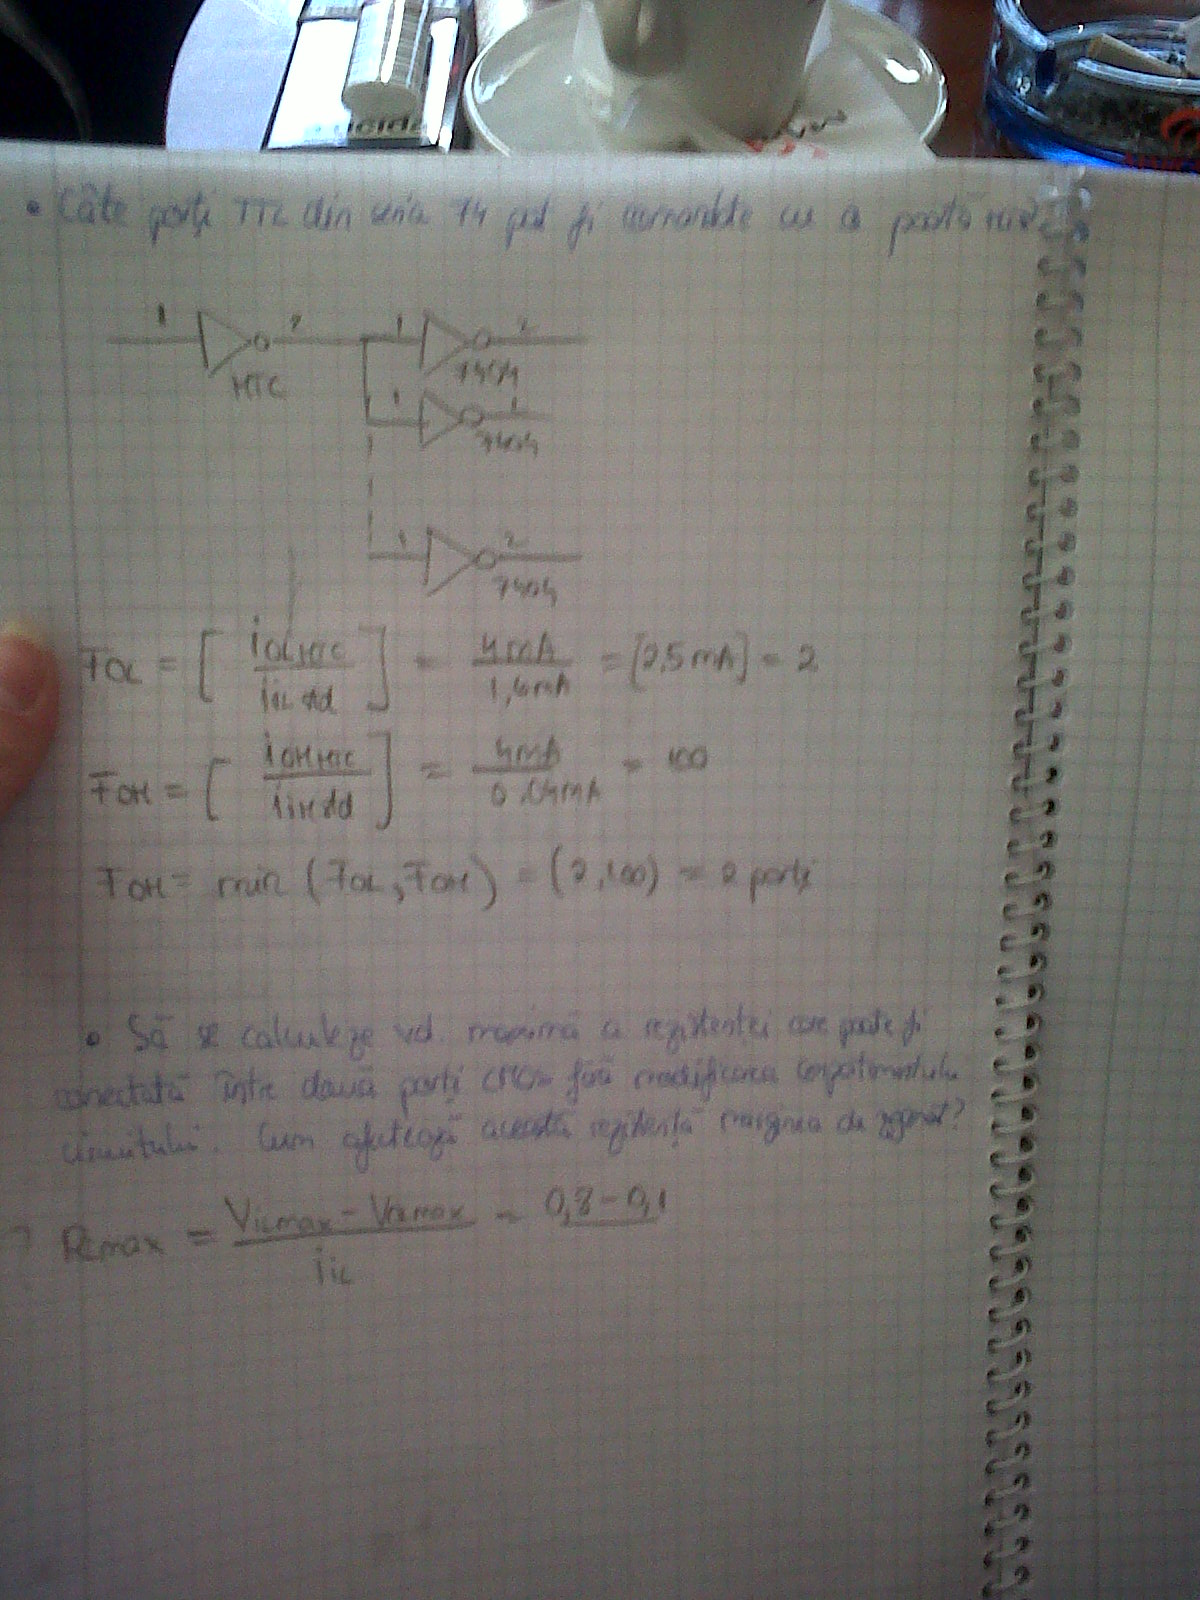 • Câte porți TTL din seria 74 pot fi comandate cu o poartă
1 2 1 2
HTC 7404
1 1
7404
1 2
7404
FOL = [ iOL HTC / iIL std ] = 4mA / 1,6mA = [2,5 mA] = 2
FOH = [ iOH HTC / iIH std ] = 4mA / 0,04mA = 100
FOH = min (FOL, FOH) = (2,100) = 2 porți
• Să se calculeze val. maximă a rezistenței care poate fi
conectată între două porți CMOS fără modificarea
circuitului. Cum afectează această rezistență marginea de zgomot?
? Rcmax = VILmax - VOLmax / iIL = 0,8 - 0,1